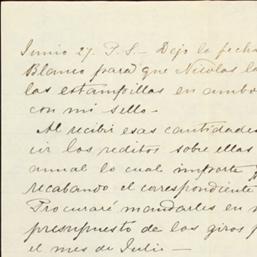 Junio 27. P.S.- Dejo la fecha
Blanco para que Nicolas la
las estampillas en ambo
con mi sello.-
Al recibir esas cantidades
cir los reditos sobre ellas
anual lo cual importe
recabando el correspondiente
Procuraré mandarles en
presupuesto de los giros p
el mes de Julio-